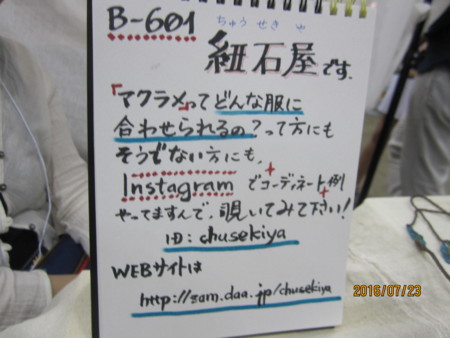 B-601
ちゅう せき や
紐石屋です.
「マクラメ」ってどんな服に
合わせられるの?って方にも
そうでない方にも,
Instagramでコーディネート例
やってますんで,覗いてみて下さい!
ID: chusekiya
WEBサイトは
http://zam.daa.jp/chusekiya
2016/07/23